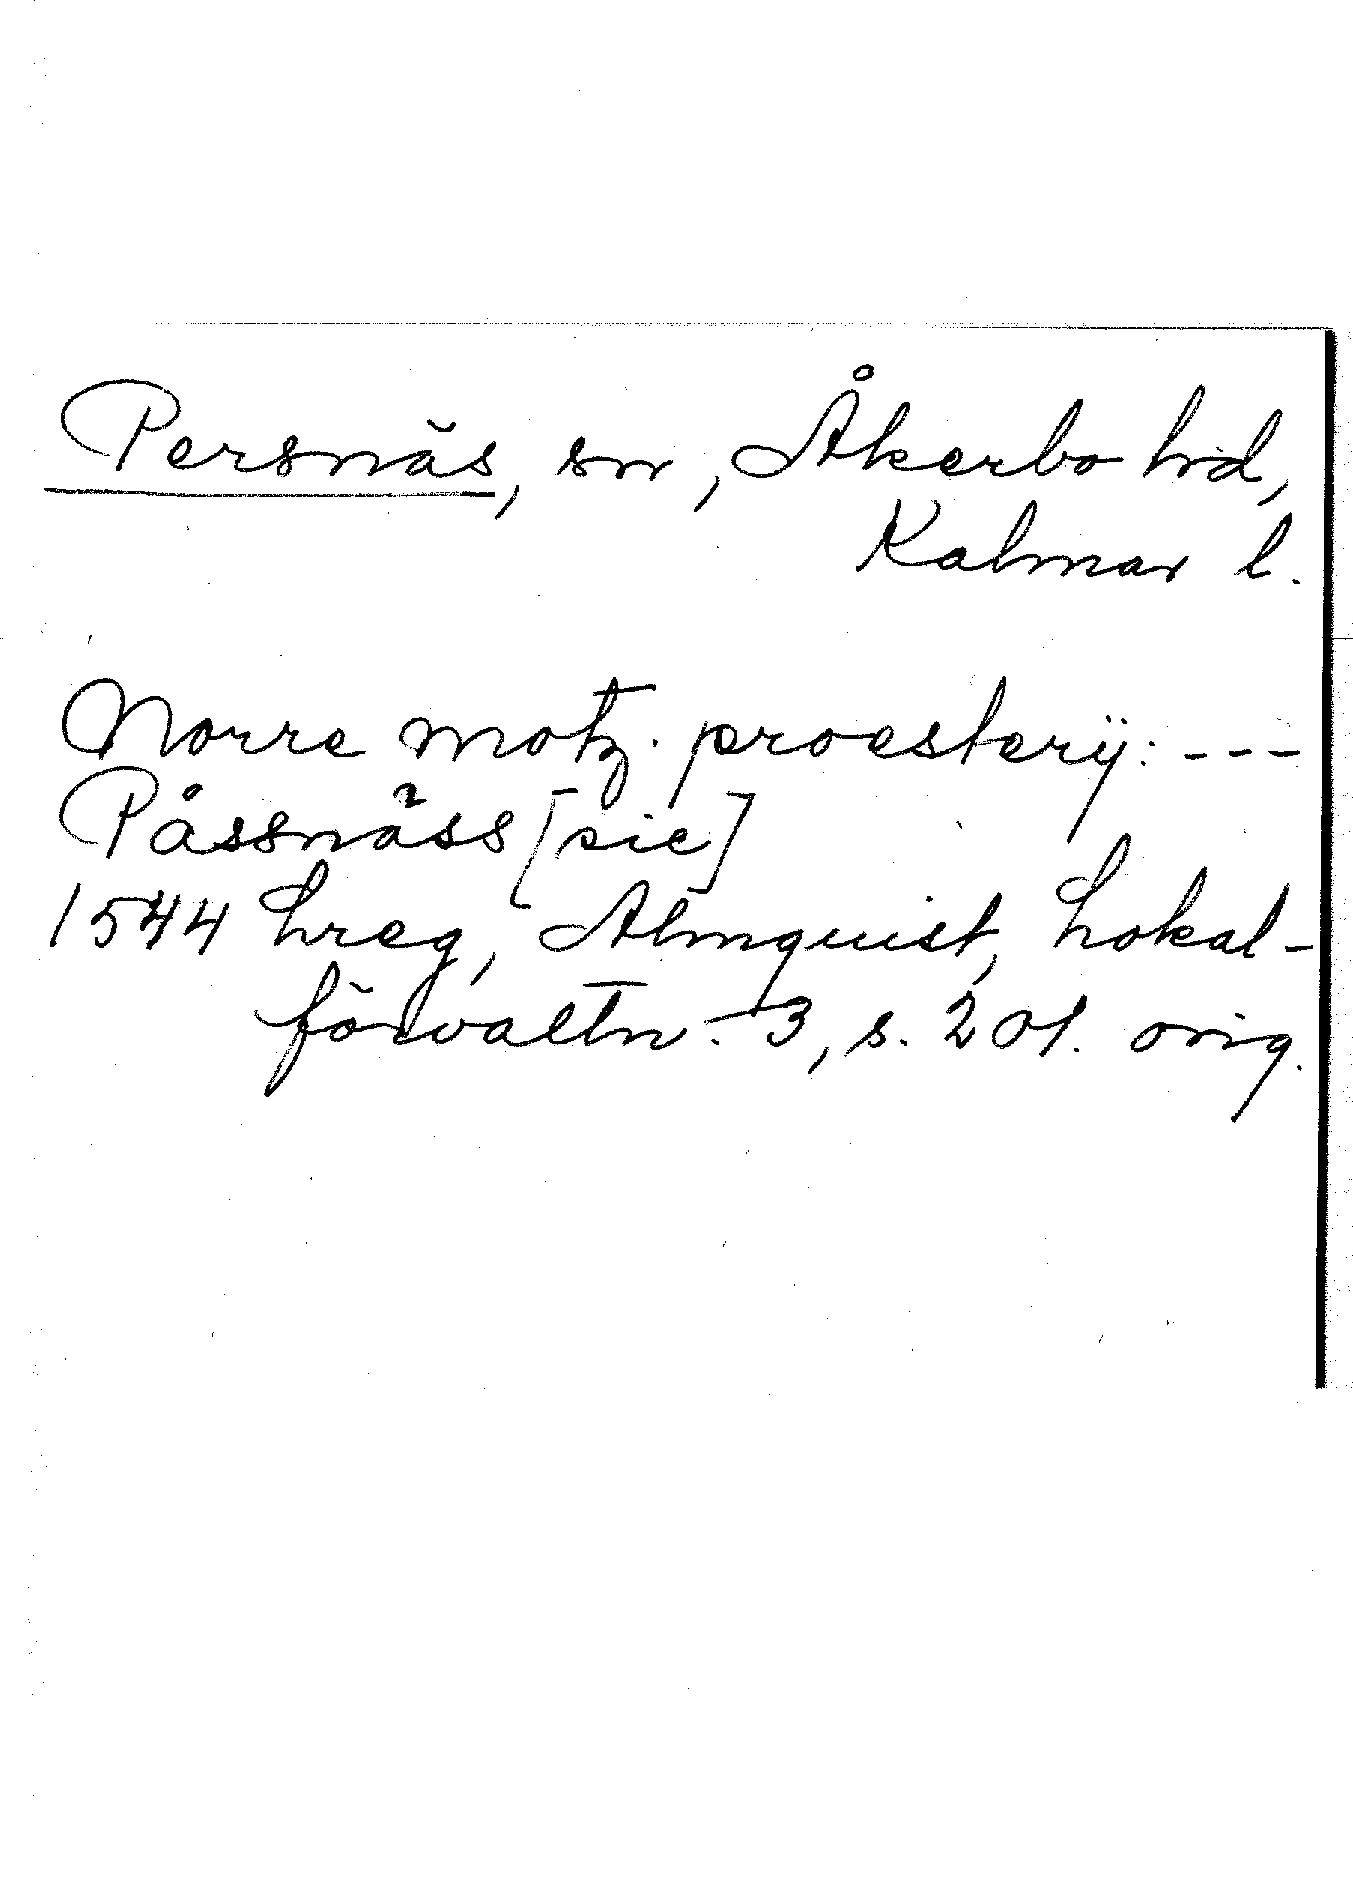 Persnäs, sn, Åkerbo hd,
Kalmar l.
Norre motz. proesterij: ---
Påssnäss [sic]
1544 Lreg, Almquist, Lokal-
förvaltn. 3, s. 201. orig.